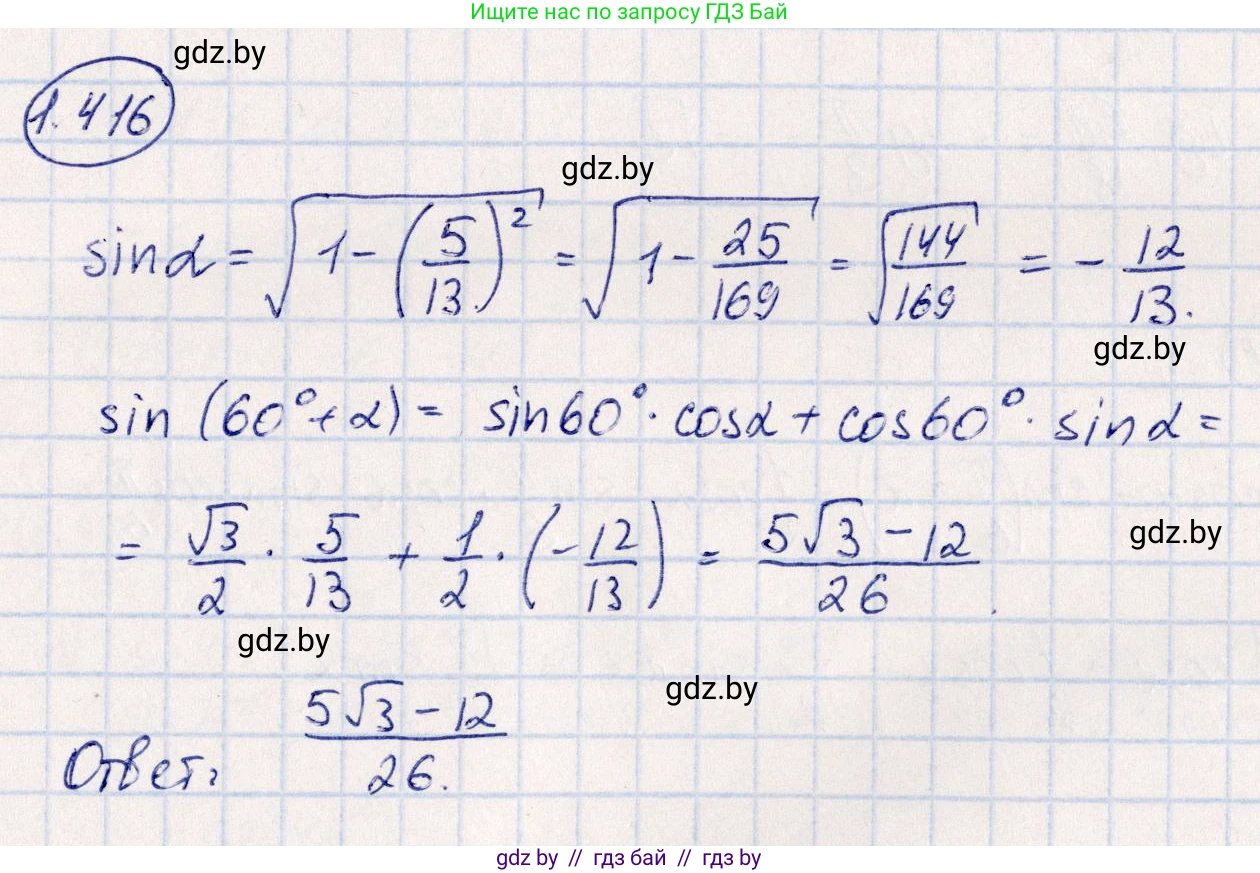 Ищите нас по запросу ГДЗ Бай
gdz.by
1.416
gdz.by
sin α = √(1 - (5/13)²) = √(1 - 25/169) = √(144/169) = - 12/13.
gdz.by
sin (60° + α) = sin 60° · cos α + cos 60° · sin α =
= √3/2 · 5/13 + 1/2 · (- 12/13) = (5√3 - 12)/26.
gdz.by
gdz.by
gdz.by
Ответ: (5√3 - 12)/26.
gdz by // гдз бай // гдз by